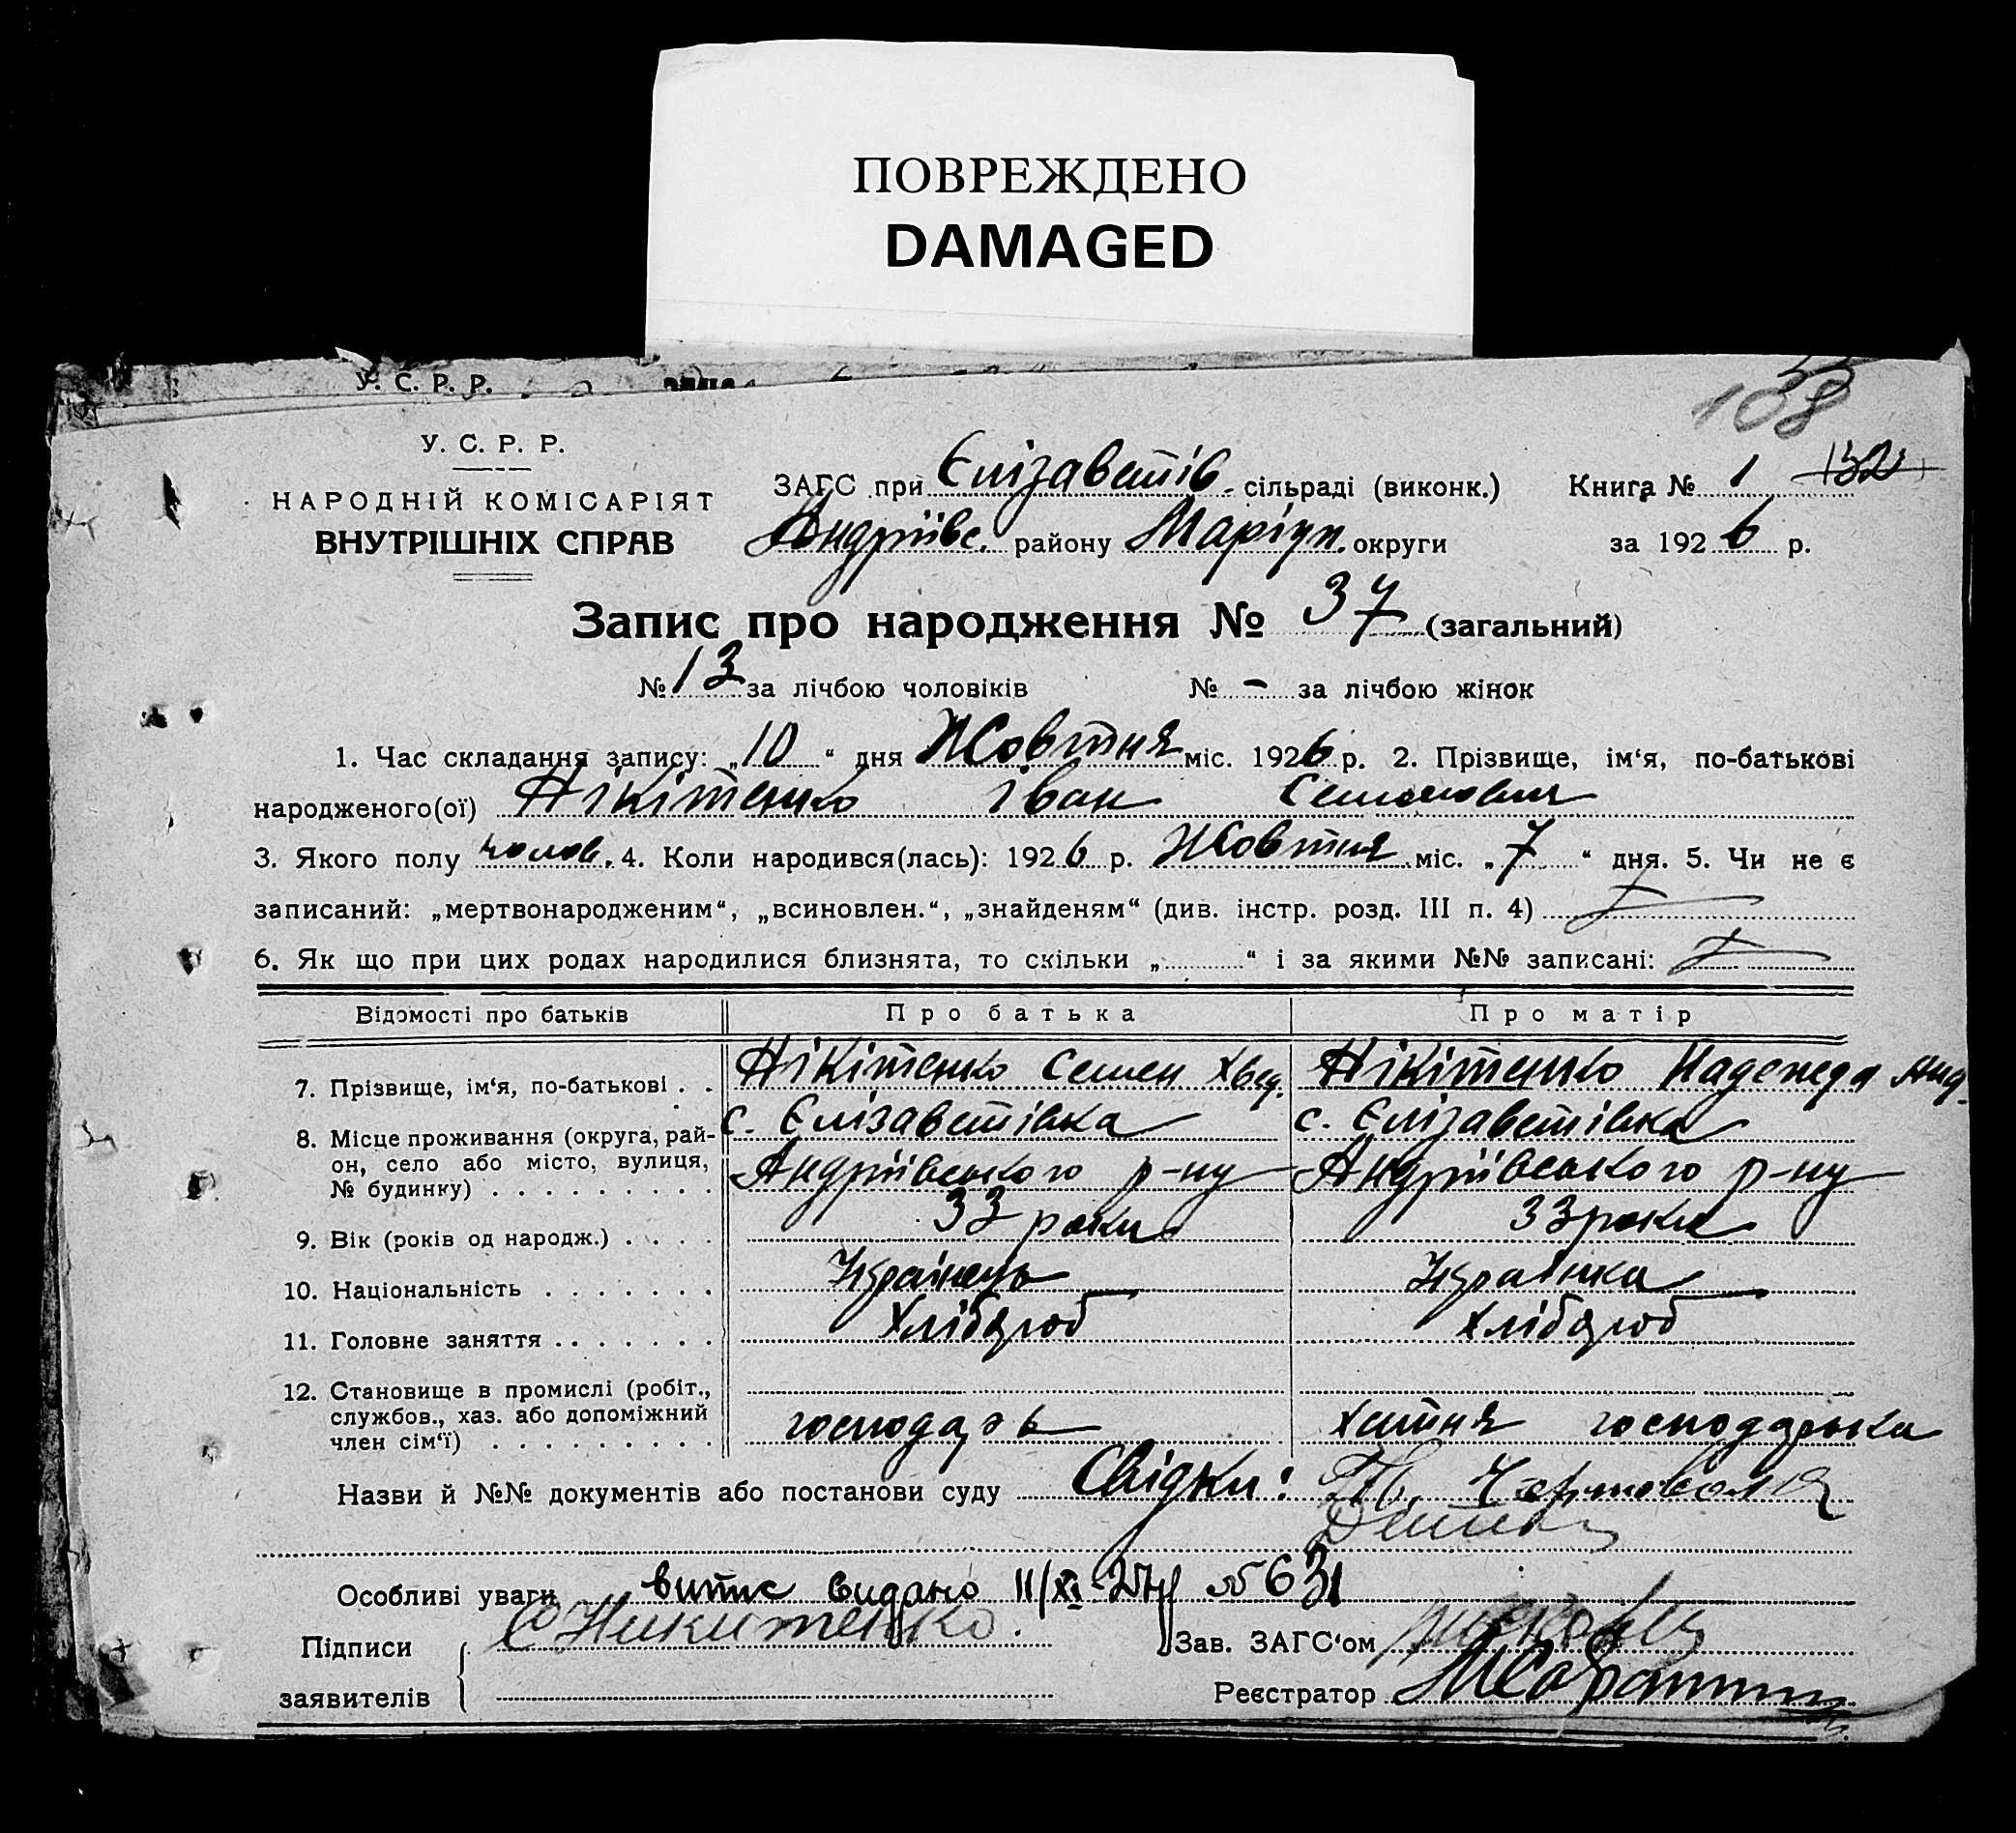 ПОВРЕЖДЕНО
DAMAGED
У. С. Р. Р.
108
У. С. Р. Р.
НАРОДНІЙ КОМІСАРІЯТ
ВНУТРІШНІХ СПРАВ
ЗАГС при Єлізаветів. сільраді (виконк.) Книга № 1 132
Андріївс. району Маріуп. округи за 1926 р.
Запис про народження № 37 (загальний)
№ 13 за лічбою чоловіків № - за лічбою жінок
1. Час складання запису: „10“ дня Жовтня міс. 1926 р. 2. Прізвище, ім‘я, по-батькові
народженого(ої) Нікітенко Іван Семенович
3. Якого полу чолов. 4. Коли народився(лась): 1926 р. Жовтня міс. „7“ дня. 5. Чи не є
записаний: „мертвонародженим“, „всиновлен.“, „знайденям“ (див. інстр. розд. III п. 4)
6. Як що при цих родах народилися близнята, то скільки „.........“ і за якими №№ записані:
Відомості про батьків Про батька Про матір
7. Прізвище, ім‘я, по-батькові . . Нікітенко Семен Хвед. Нікітенко Надежда Анд.
8. Місце проживання (округа, рай-он, село або місто, вулиця, № будинку) . . . . . . . . . с. Єлізаветівка Андріївського р-ну с. Єлізаветівка Андріївського р-ну
9. Вік (років од народж.) . . . . 33 роки 33 роки
10. Національність . . . . . . . Українець Українка
11. Головне заняття . . . . . . . Хлібороб Хлібороб
12. Становище в промислі (робіт., службов., хаз. або допоміжний член сім‘ї) . . . . . . . . . господарь хатня господарька
Назви й №№ документів або постанови суду Свідки:
Особливі уваги витис видано 11/XI-27р № 631
Підписи С Никитенко. Зав. ЗАГС‘ом
заявителів Реєстратор